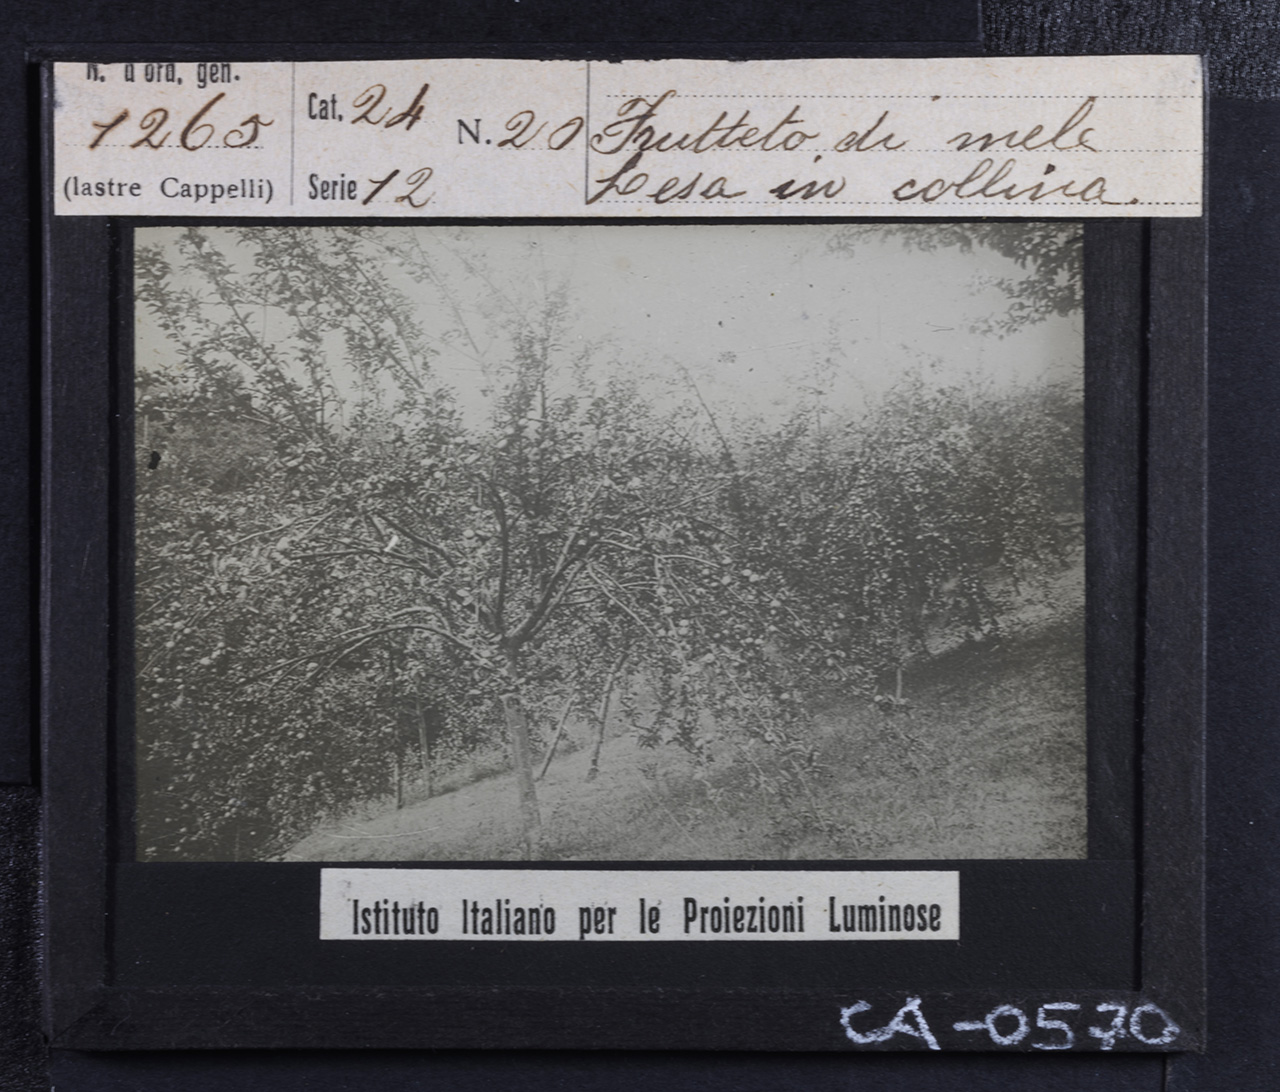 N. d'ord. gen.
1265
(lastre Cappelli)
Cat. 24
Serie 12
N. 20
Frutteto di mele
Lesa in collina.
Istituto Italiano per le Proiezioni Luminose
CA-0570